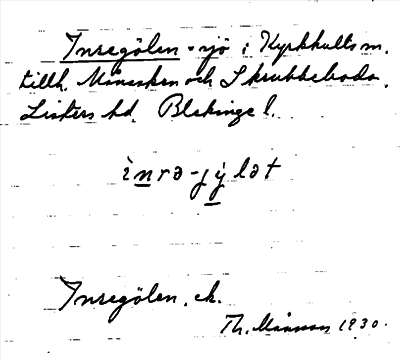 Inregölen - sjö i Kyrkhults sn.
tillh. Månasken och Skrubbeboda.
Listers hd. Blekinge l.
ìnrə-jy̆lət
Inregölen. ek.
Th. Månsson 1930.